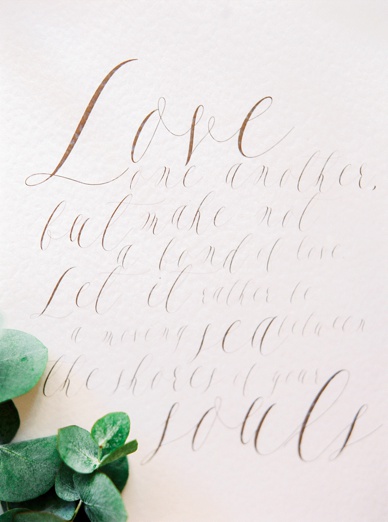 Love
one another,
but make not
a bond of love
Let it rather be
a moving sea between
the shores of your
souls